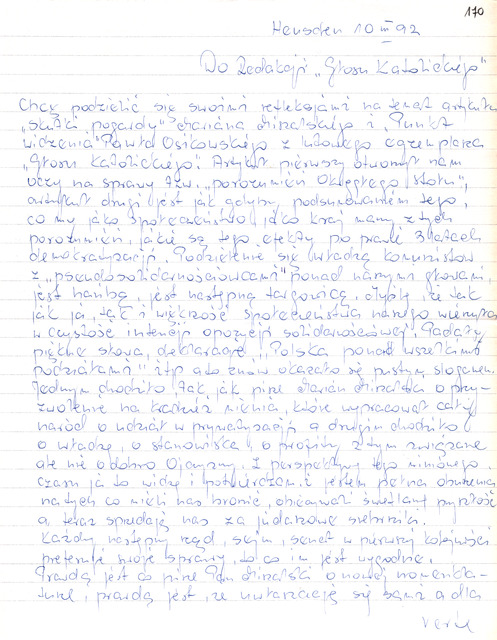 170
Heusden 10 III 92
Do Redakcji „Głosu Katolickiego"
Chcę podzielić się swoimi refleksjami na temat artykułu
„Skutki pogardy" Mariana Miszalskiego i „Punkt
widzenia" Pawła Osikowskiego z lutowego egzemplarza
„Głosu Katolickiego". Artykuł pierwszy otworzył nam
oczy na sprawy tzw. „porozumień Okrągłego Stołu",
artykuł drugi jest jak gdyby podsumowaniem tego,
co my jako społeczeństwo, jako kraj mamy z tych
porozumień, jakie są tego efekty po prawie 3 latach
demokratyzacji. Podzielenie się władzą komunistów
z „pseudosolidarnościowcami" ponad naszymi głowami,
jest hańbą, jest następną targowicą. Myślę, że tak
jak ja, tak i większość społeczeństwa naszego wierzyła
w czystość intencji opozycji solidarnościowej. Padały
piękne słowa, deklaracje, „Polska ponad wszelkimi
podziałami" itp a to znów okazało się pustym sloganem.
Jednym chodziło, tak jak pisze Marian Miszalski o przy-
zwolenie na kradzież mienia, które wypracował cały
naród o udział w prywatyzacji a drugim chodziło
o władzę, o stanowiska, o profity z tym związane
ale nie o dobro Ojczyzny. Z perspektywy tego minionego
czasu ja to widzę i potwierdzam i jestem pełna oburzenia
na tych co mieli nas bronić, obiecywali świetlaną przyszłość
a teraz sprzedają nas za judaszowe srebrniki.
Każdy następny rząd, sejm, senat w pierwszej kolejności
preferuje swoje sprawy, to co im jest wygodne.
Prawdą jest co pisze Pan Miszalski o nowej nomenkla-
turze, prawdą jest, że uwłaszczają się sami a dla
verte